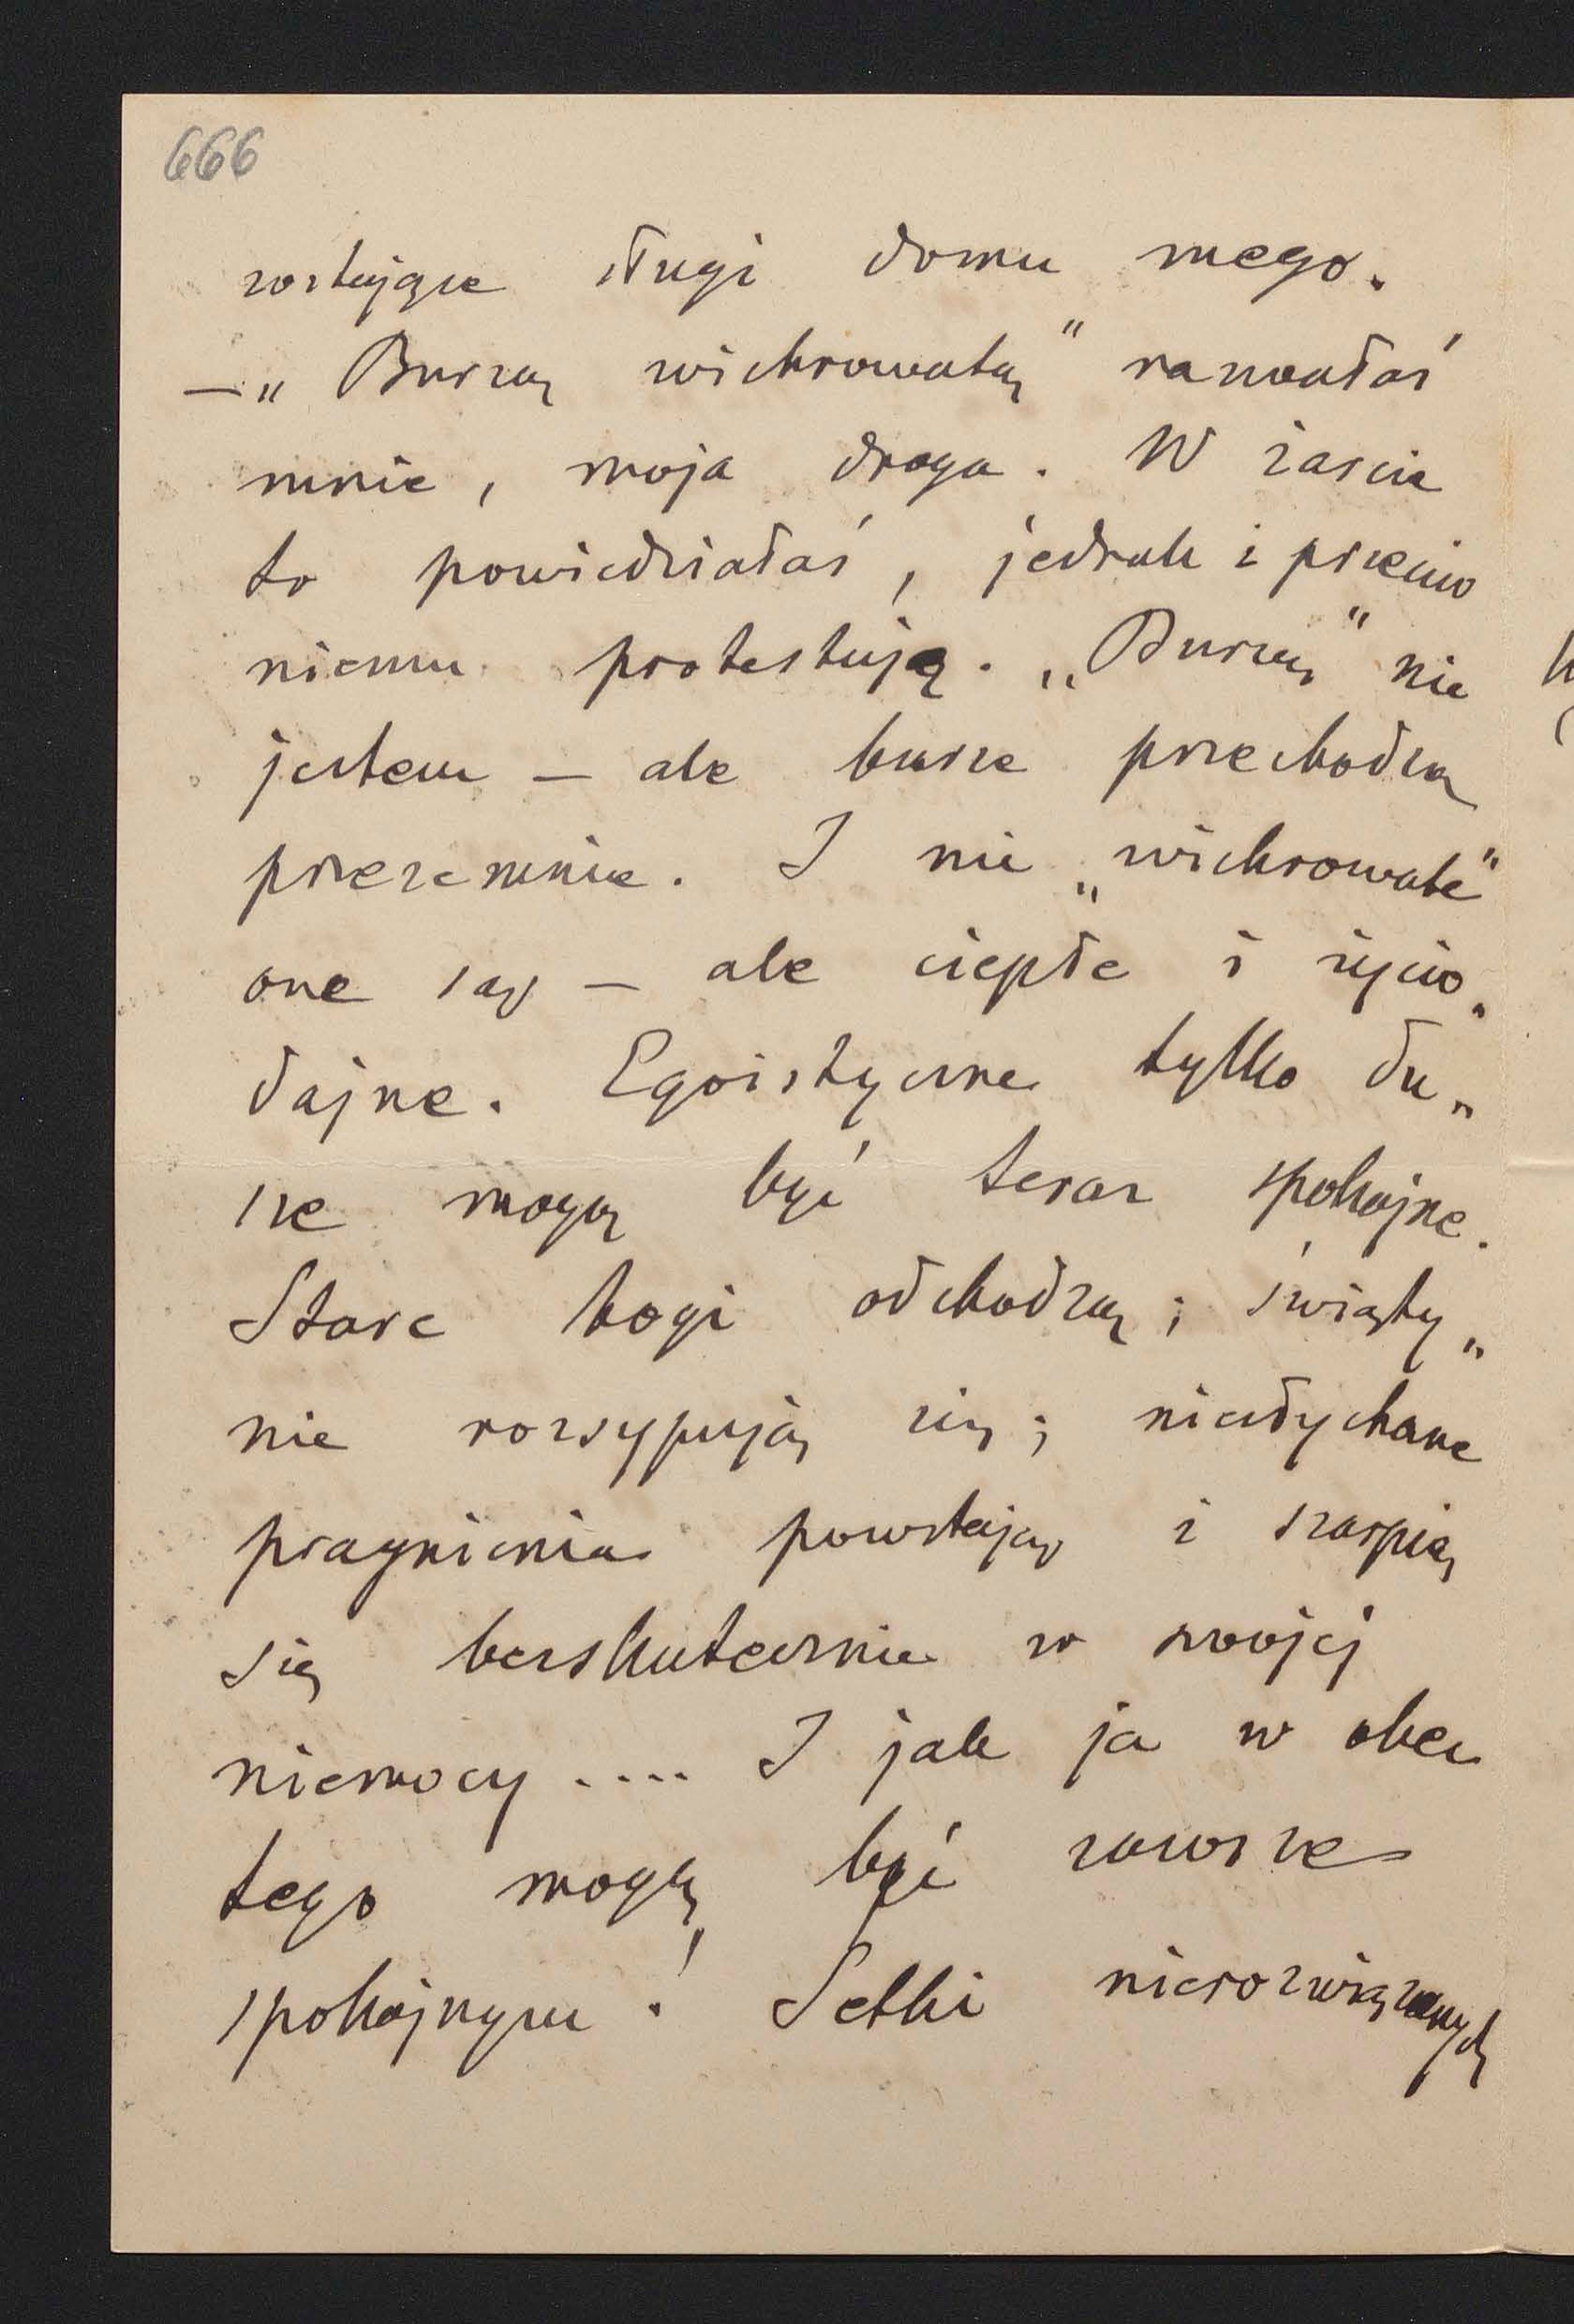 666
rostujące sługi domu mego.
— „Burzą wichrowatą" nazwałaś
mnie, moja droga. W żarcie
to powiedziałaś, jednak i przeciw
niemu protestuję. „Burzą" nie
jestem — ale burze przechodzą
przezemnie. I nie „wichrowate"
one są — ale ciepłe i życio„
dajne. Egoistyczne tylko du„
sze mogą być teraz spokojne.
Stare bogi odchodzą; święty„
nie rozsypują się; niesłychane
pragnienia powstają i szarpią
się bezskutecznie w swojej
niemocy .... I jak ja w obec
tego mogę być zawsze
spokojnym! Setki nierozwiązanych